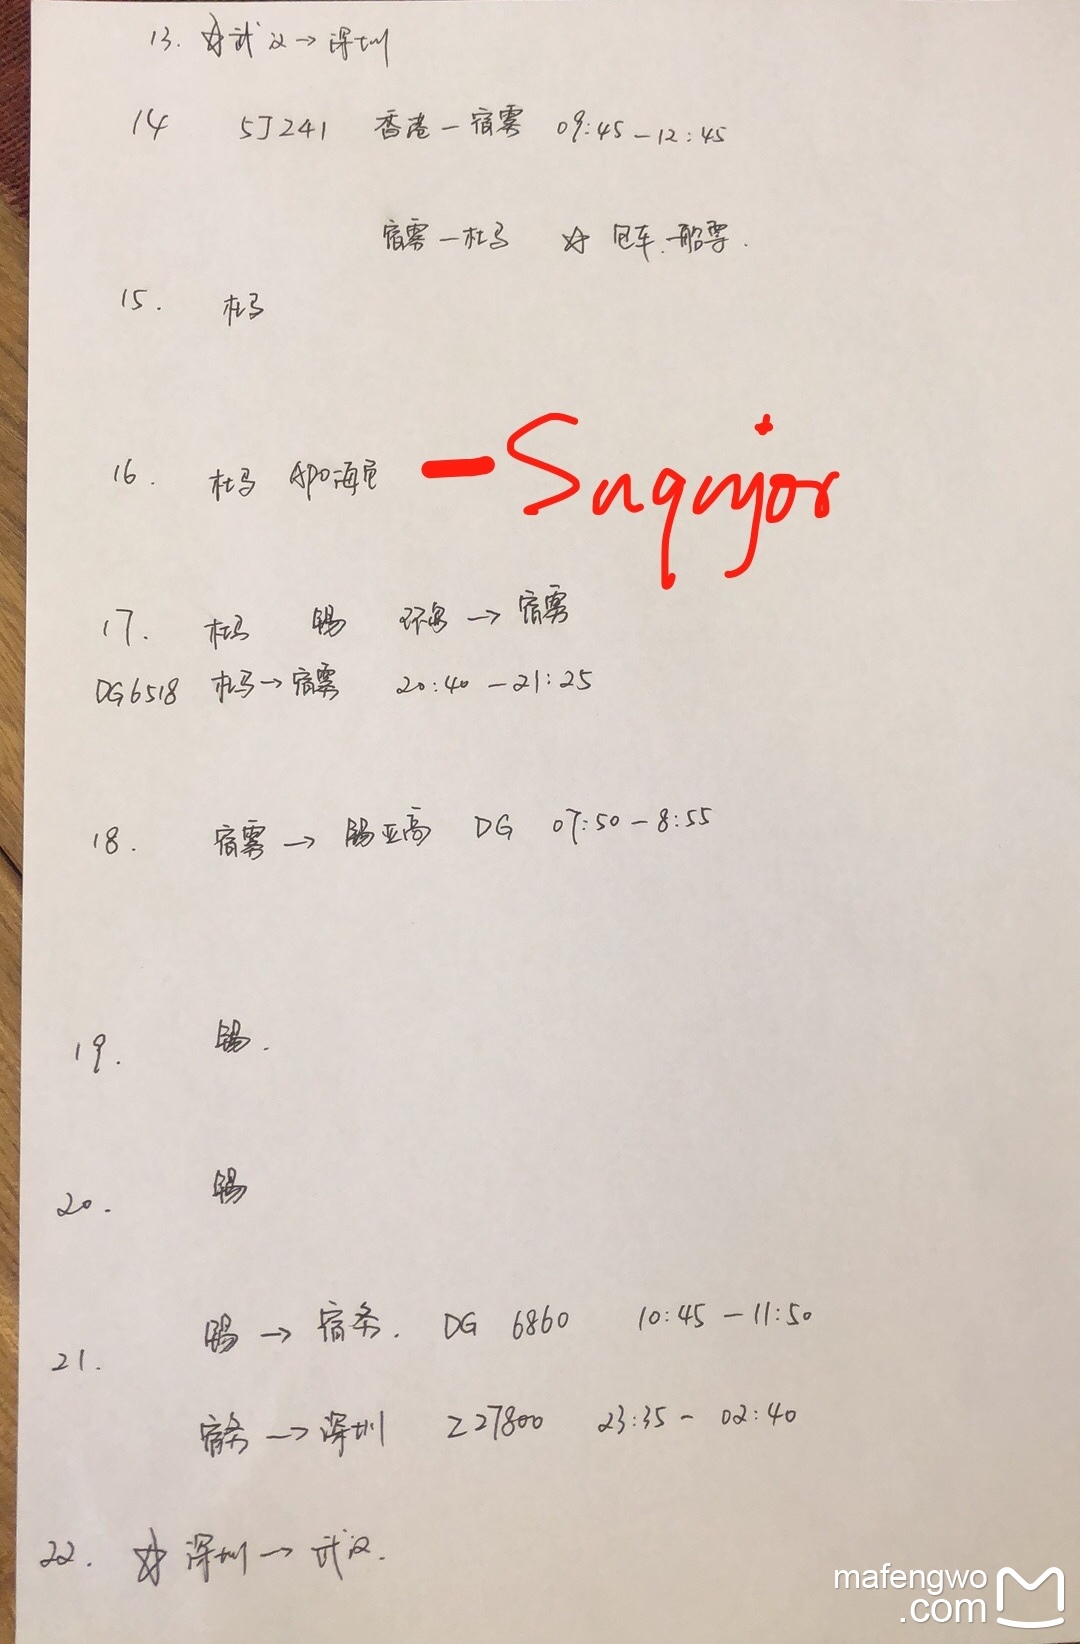 13. ☆武汉→深圳
14 5J241 香港－宿雾 09:45－12:45
宿雾－杜马 ☆ 包车、船票.
15. 杜马
16. 杜马 APO海岛 — Suquijor
17. 杜马 锡 环岛 → 宿雾
DG6518 杜马→宿雾 20:40－21:25
18. 宿雾 → 锡亚高 DG 07:50－8:55
19. 锡.
20. 锡
21. 锡 → 宿务. DG 6860 10:45－11:50
宿务 → 深圳 Z27800 23:35－02:40
22. ☆ 深圳 → 武汉.
mafengwo
.com